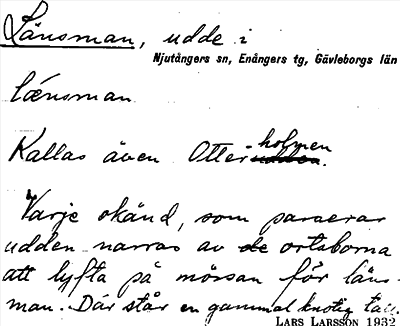 Länsman, udde i
Njutångers sn, Enångers tg, Gävleborgs län
lænsman
Kallas även Otter-holmen.
Varje okänd, som passerar
udden narras av de ortsborna
att lyfta på mössan för läns-
man. Där står en gammal knotig tall.
LARS LARSSON 1932